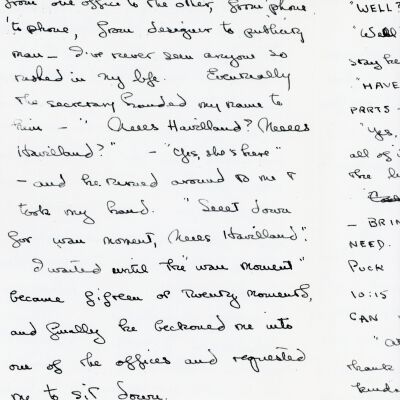 from one office to the other, from phone
to phone, from designer to publicity
man — I've never seen anyone so
rushed in my life. Eventually
the secretary handed my name to
him — " Meees Havilland? Meeees
Havilland?" — "Yes, she's here"
— and he turned around to me &
took my hand. "Seeet down
for wan moment, Meees Havilland".
I waited until the "wan moment"
became fifteen or twenty moments,
and finally he beckoned me into
one of the offices and requested
me to sit down.
"WELL?
"Well
stay he
"HAVE
PARTS —
"Yes,
all of i
the l
— BRIN
NEED.
PUCK
10:15
CAN
"
thank
kind